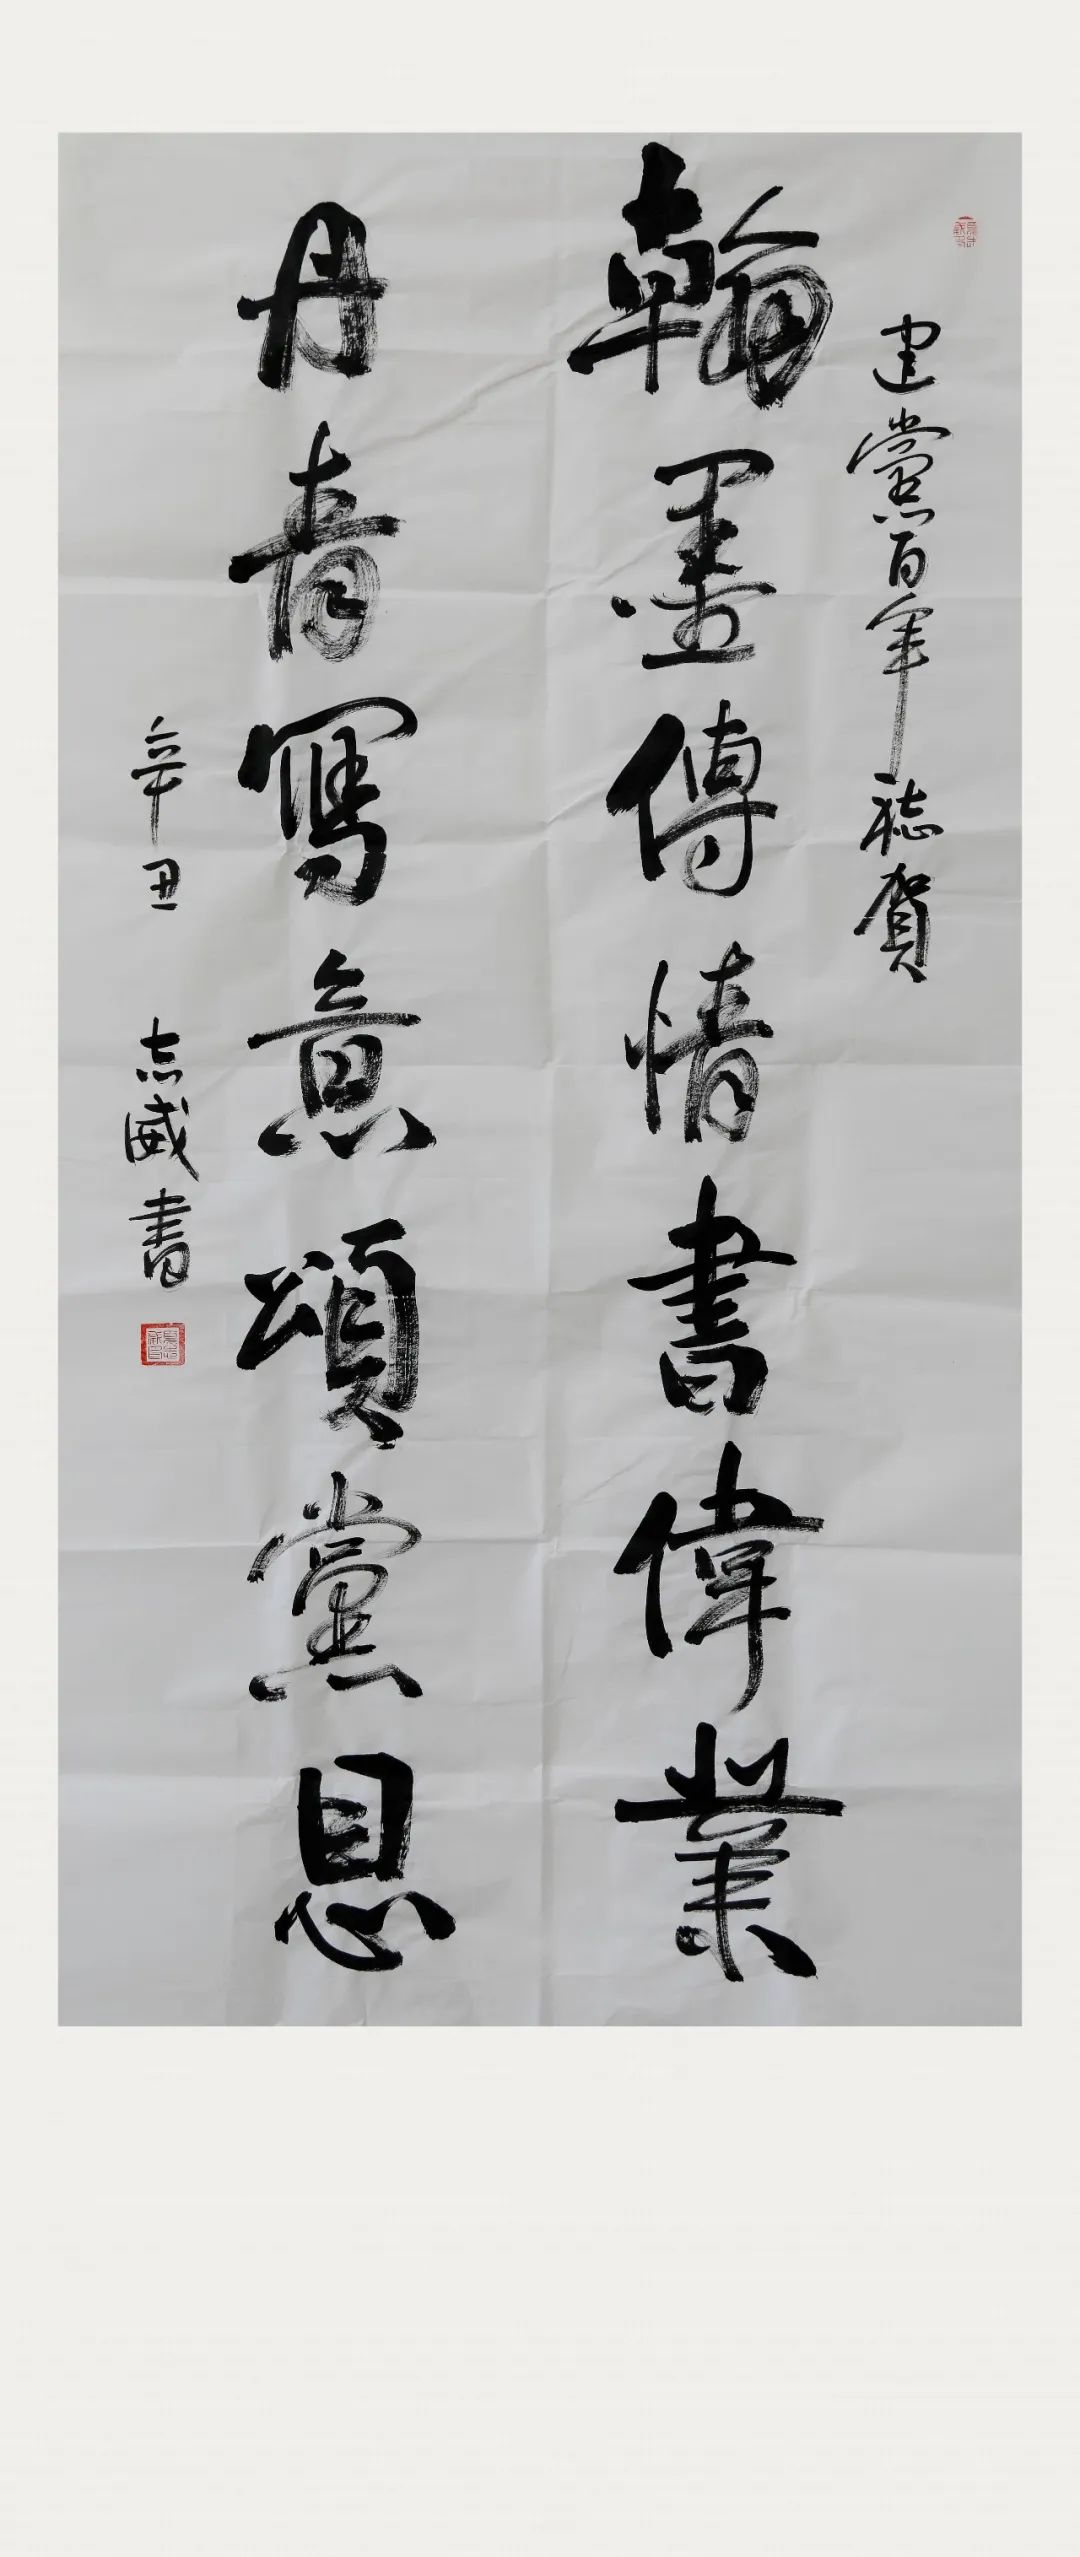 建黨百年誌賀
翰墨傳情書偉業
丹青寫意頌黨恩
辛丑 志威書